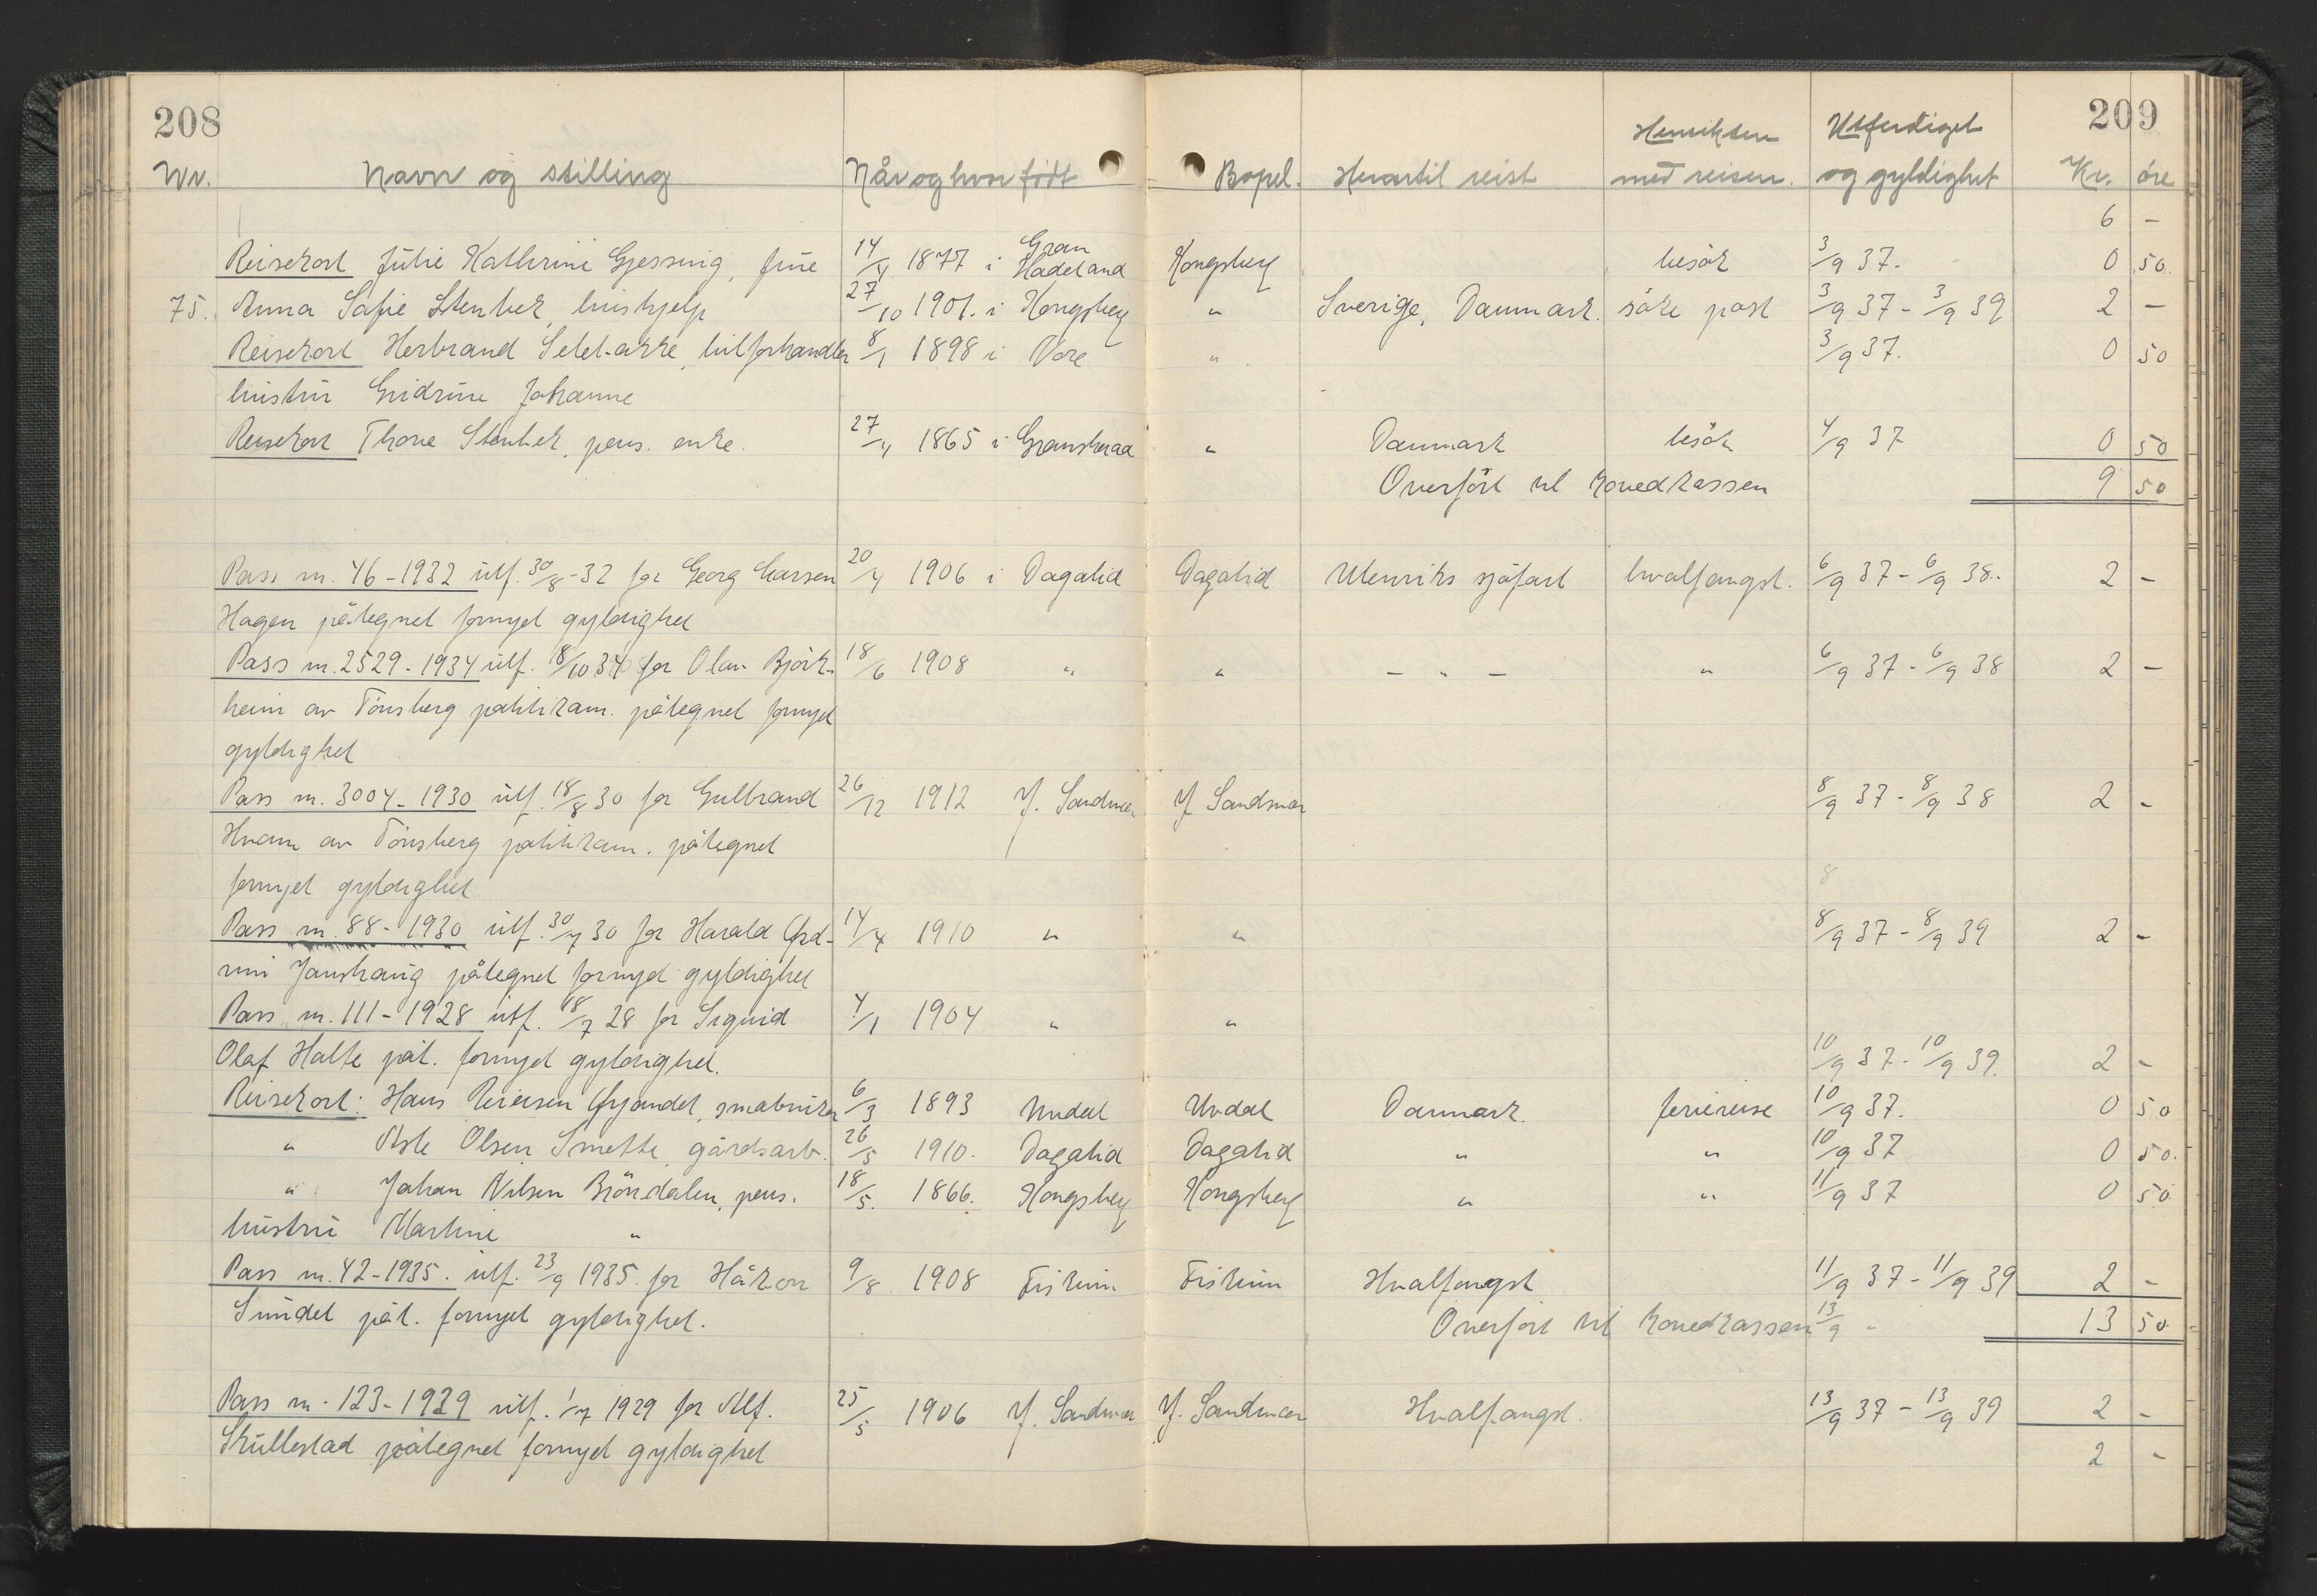 208
209
Nr. Navn og stilling Når og hvor født Bopel. Hvortil reist Hensikten med reisen. Utferdiget og gyldighet Kr. øre
6 -
Reisekort Julie Kathrine Gjessing, frue 14/4 1877 i Gran Hadeland Kongsberg besøk 3/9 37. 0 50.
75. Anna Sofie Stenbek, hushjelp 27/10 1901. i Kongsberg " Sverige, Danmark. søke post 3/9 37 - 3/9 39 2 -
Reisekort Herbrand bilforhandler 8/1 1898 i Nore " 3/9 37. 0 50
hustru Gudrune Johanne
Reisekort Thone Stenbek, pens. enke. 27/4 1865 i Gransherad " Danmark besøk 4/9 37 0 50
Overført til hovedkassen 9 50
Pass nr. 46-1932 utf. 30/8-32 for Georg Larsen 20/4 1906 i Dagalid Dagalid Utenriks sjøfart hvalfangst. 6/9 37 - 6/9 38. 2 -
Hagen påtegnet fornyet gyldighet
Pass nr. 2529-1934 utf. 8/10 34 for Olav Bjørk- 18/6 1908 " " - " - " 6/9 37 - 6/9 38 2 -
heim av Tønsberg politikam. påtegnet fornyet
gyldighet
Pass nr. 3004-1930 utf. 18/8 30 for Gulbrand 26/12 1912 Y. Sandsvær Y Sandsvær 8/9 37 - 8/9 38 2 -
Hvam av Tønsberg politikam. påtegnet
fornyet gyldighet
Pass nr. 88-1930 utf. 30/7 30 for Harald 14/4 1910 " " 8/9 37 - 8/9 39 2 -
Jonshaug påtegnet fornyet gyldighet
Pass nr. 111-1928 utf. 18/7 28 for Sigurd 4/1 1904 " "
Olaf Holte påt. fornyet gyldighet. 10/9 37 - 10/9 39. 2 -
Reisekort: Hans Reiersen småbruker 6/3 1893 Uvdal Uvdal Danmark. feriereise 10/9 37. 0 50
" Asle Olsen Smette, gårdsarb. 26/5 1910. Dagalid Dagalid " " 10/9 37 0 50.
" Johan Nilsen Brøndalen, pens. 18/5. 1866. Kongsberg Kongsberg " " 11/9 37 0 50
hustru Martine "
Pass nr. 42-1935. utf. 23/9 1935. for Håkon 9/8. 1908 Fiskum Fiskum Hvalfangst 11/9 37 - 11/9 39 2 -
Sundet påt. fornyet gyldighet. Overført til hovedkassen 13/9 - 13 50.
Pass nr. 123-1929 utf. 1/7 1929 for Alf. 25/5 1906 Y. Sandsvær Y. Sandsvær Hvalfangst. 13/9 37 - 13/9 39 2 -
Skullestad påtegnet fornyet gyldighet 2 -